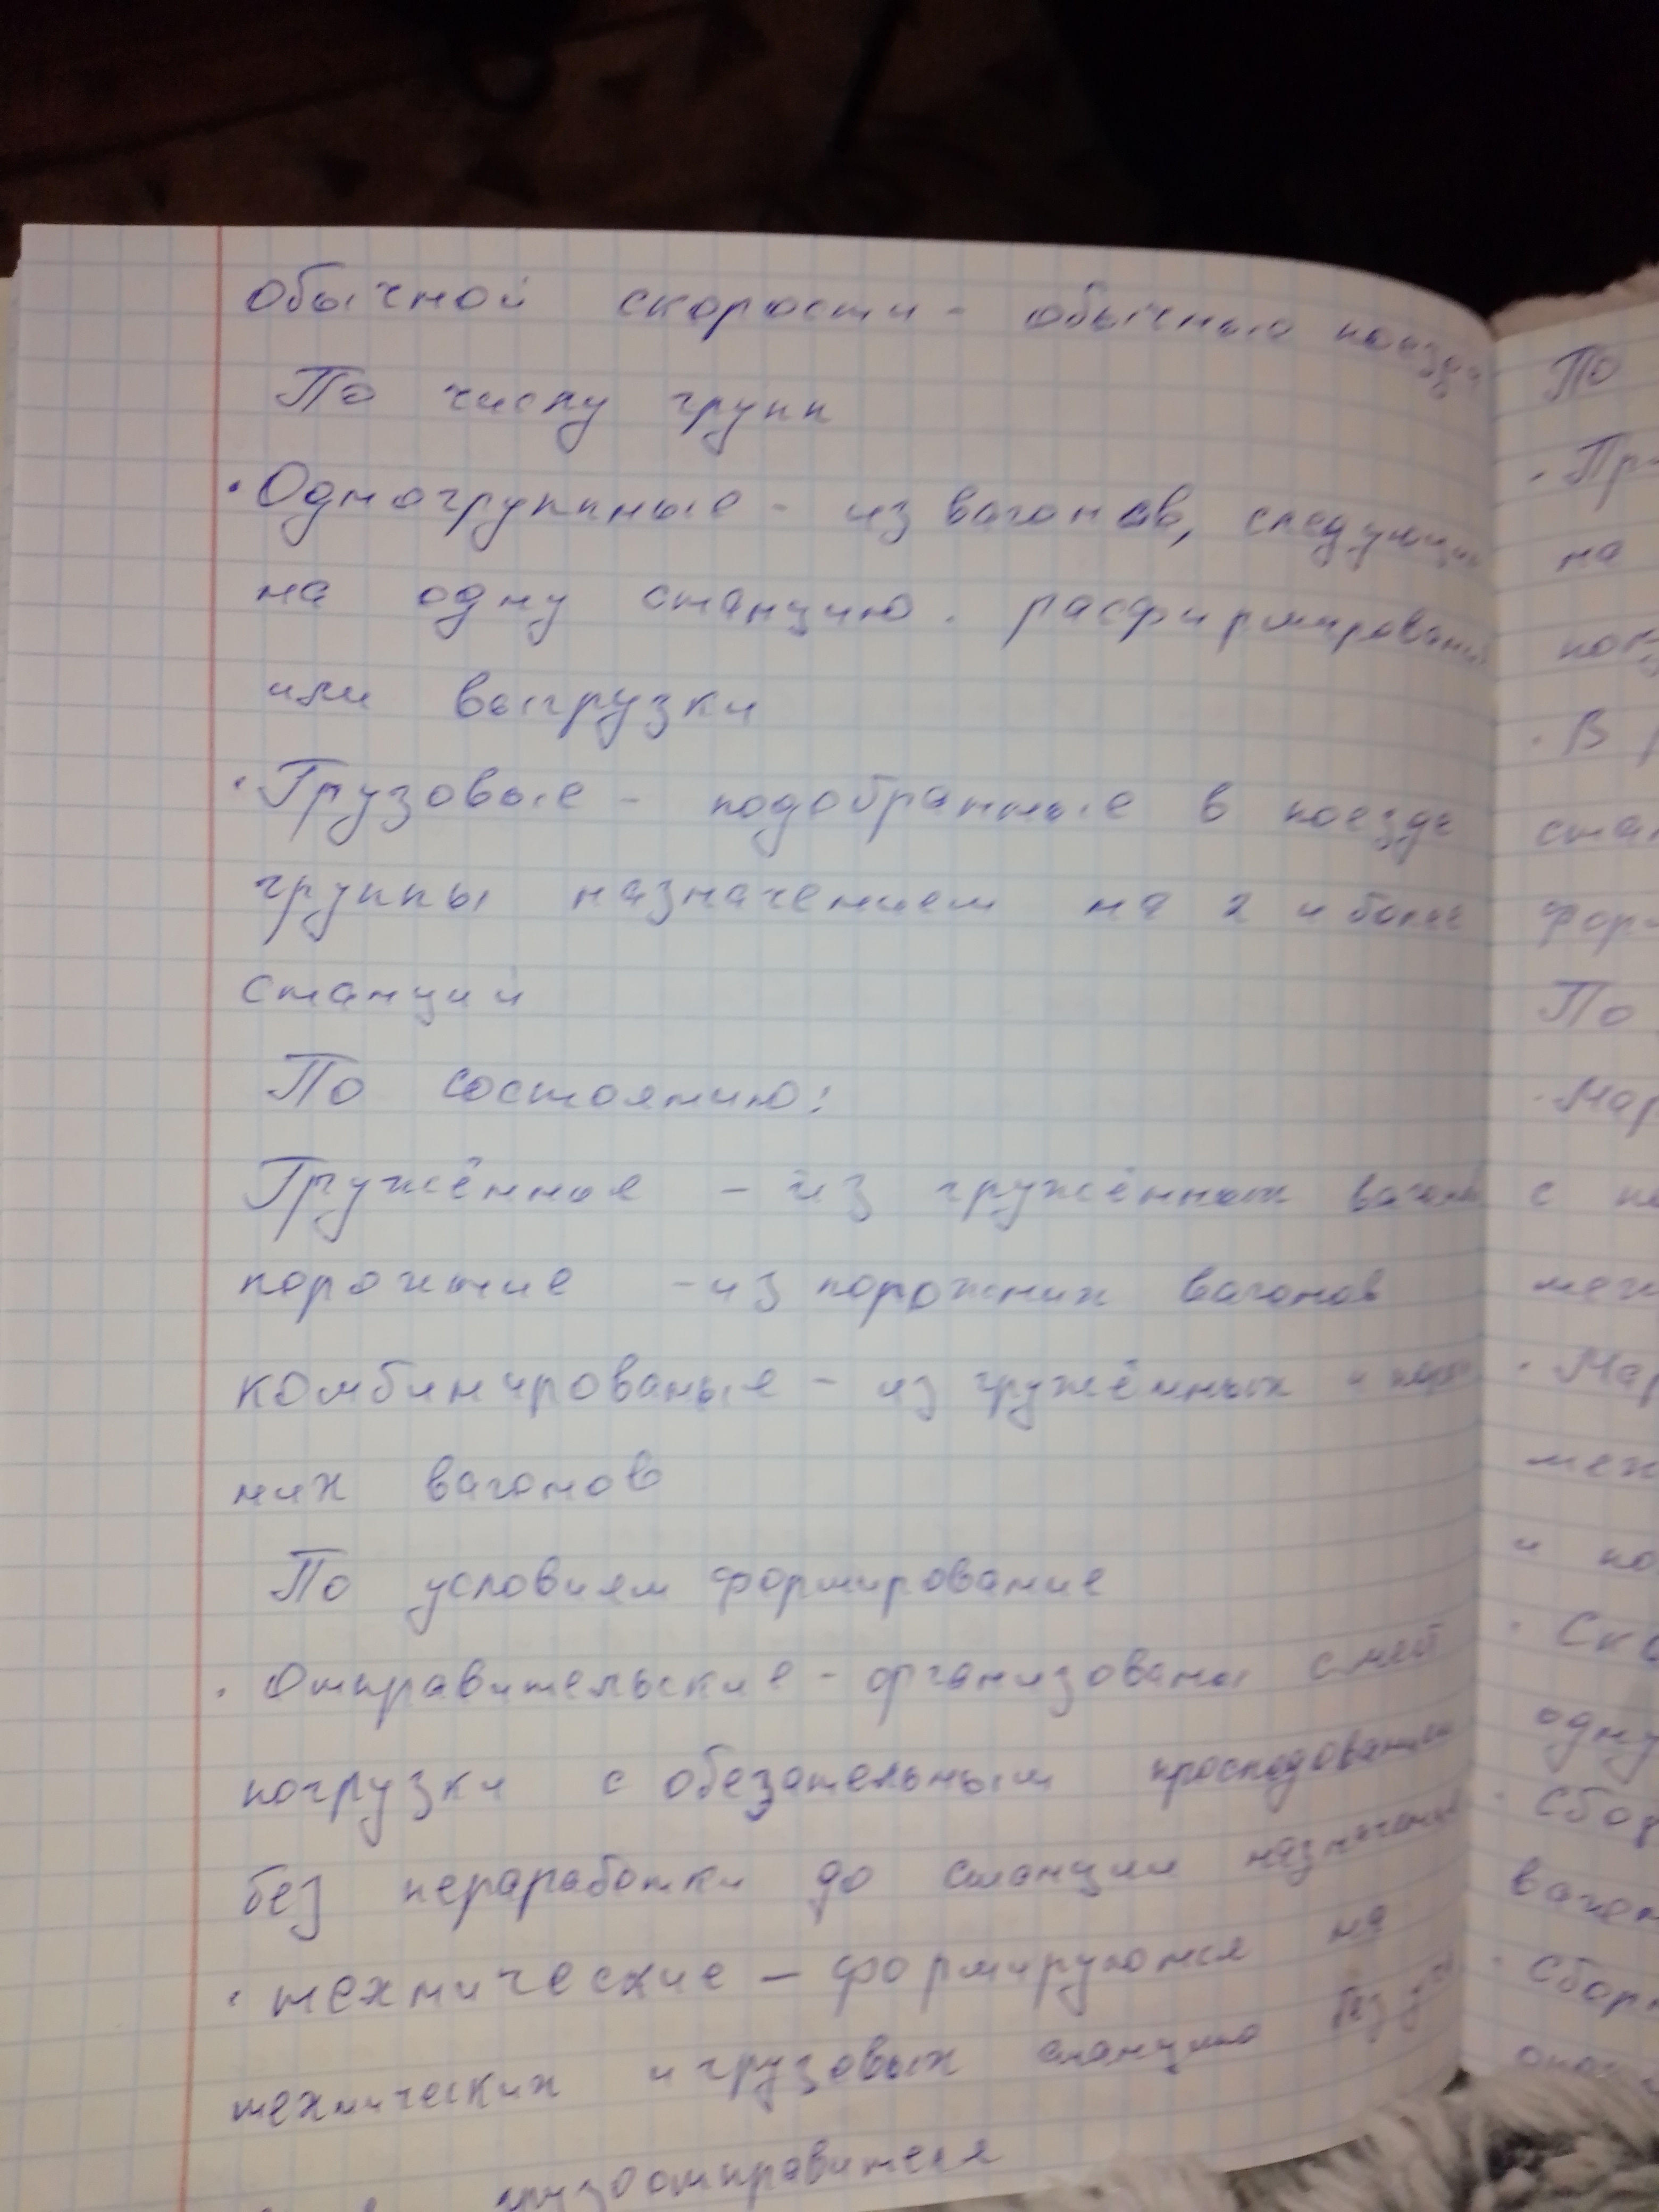 обычной скорости - обычные поезда
По числу групп
· Одногруппные - из вагонов, следующих
на одну станцию. расфирмирования
или выгрузки
· Грузовые - подобранные в поезде
группы назначением на 2 и более
станций
По состоянию:
Гружённые - из гружённых вагонов
порожние - из порожних вагонов
комбинированые - из гружённых и порож
них вагонов
По условиям формирование
· Отправительские - организованы с мест
погрузки с обезательным проследованием
без переработки до станции назначения
· технические - формируются на
технических и грузовых станцию без
грузоотправителя
По
· Пр
на
· В р
ста
фор
По
· Мар
с
меж
· Мар
меж
и по
· Ско
одну
· Сбор
вагон
· Сборн